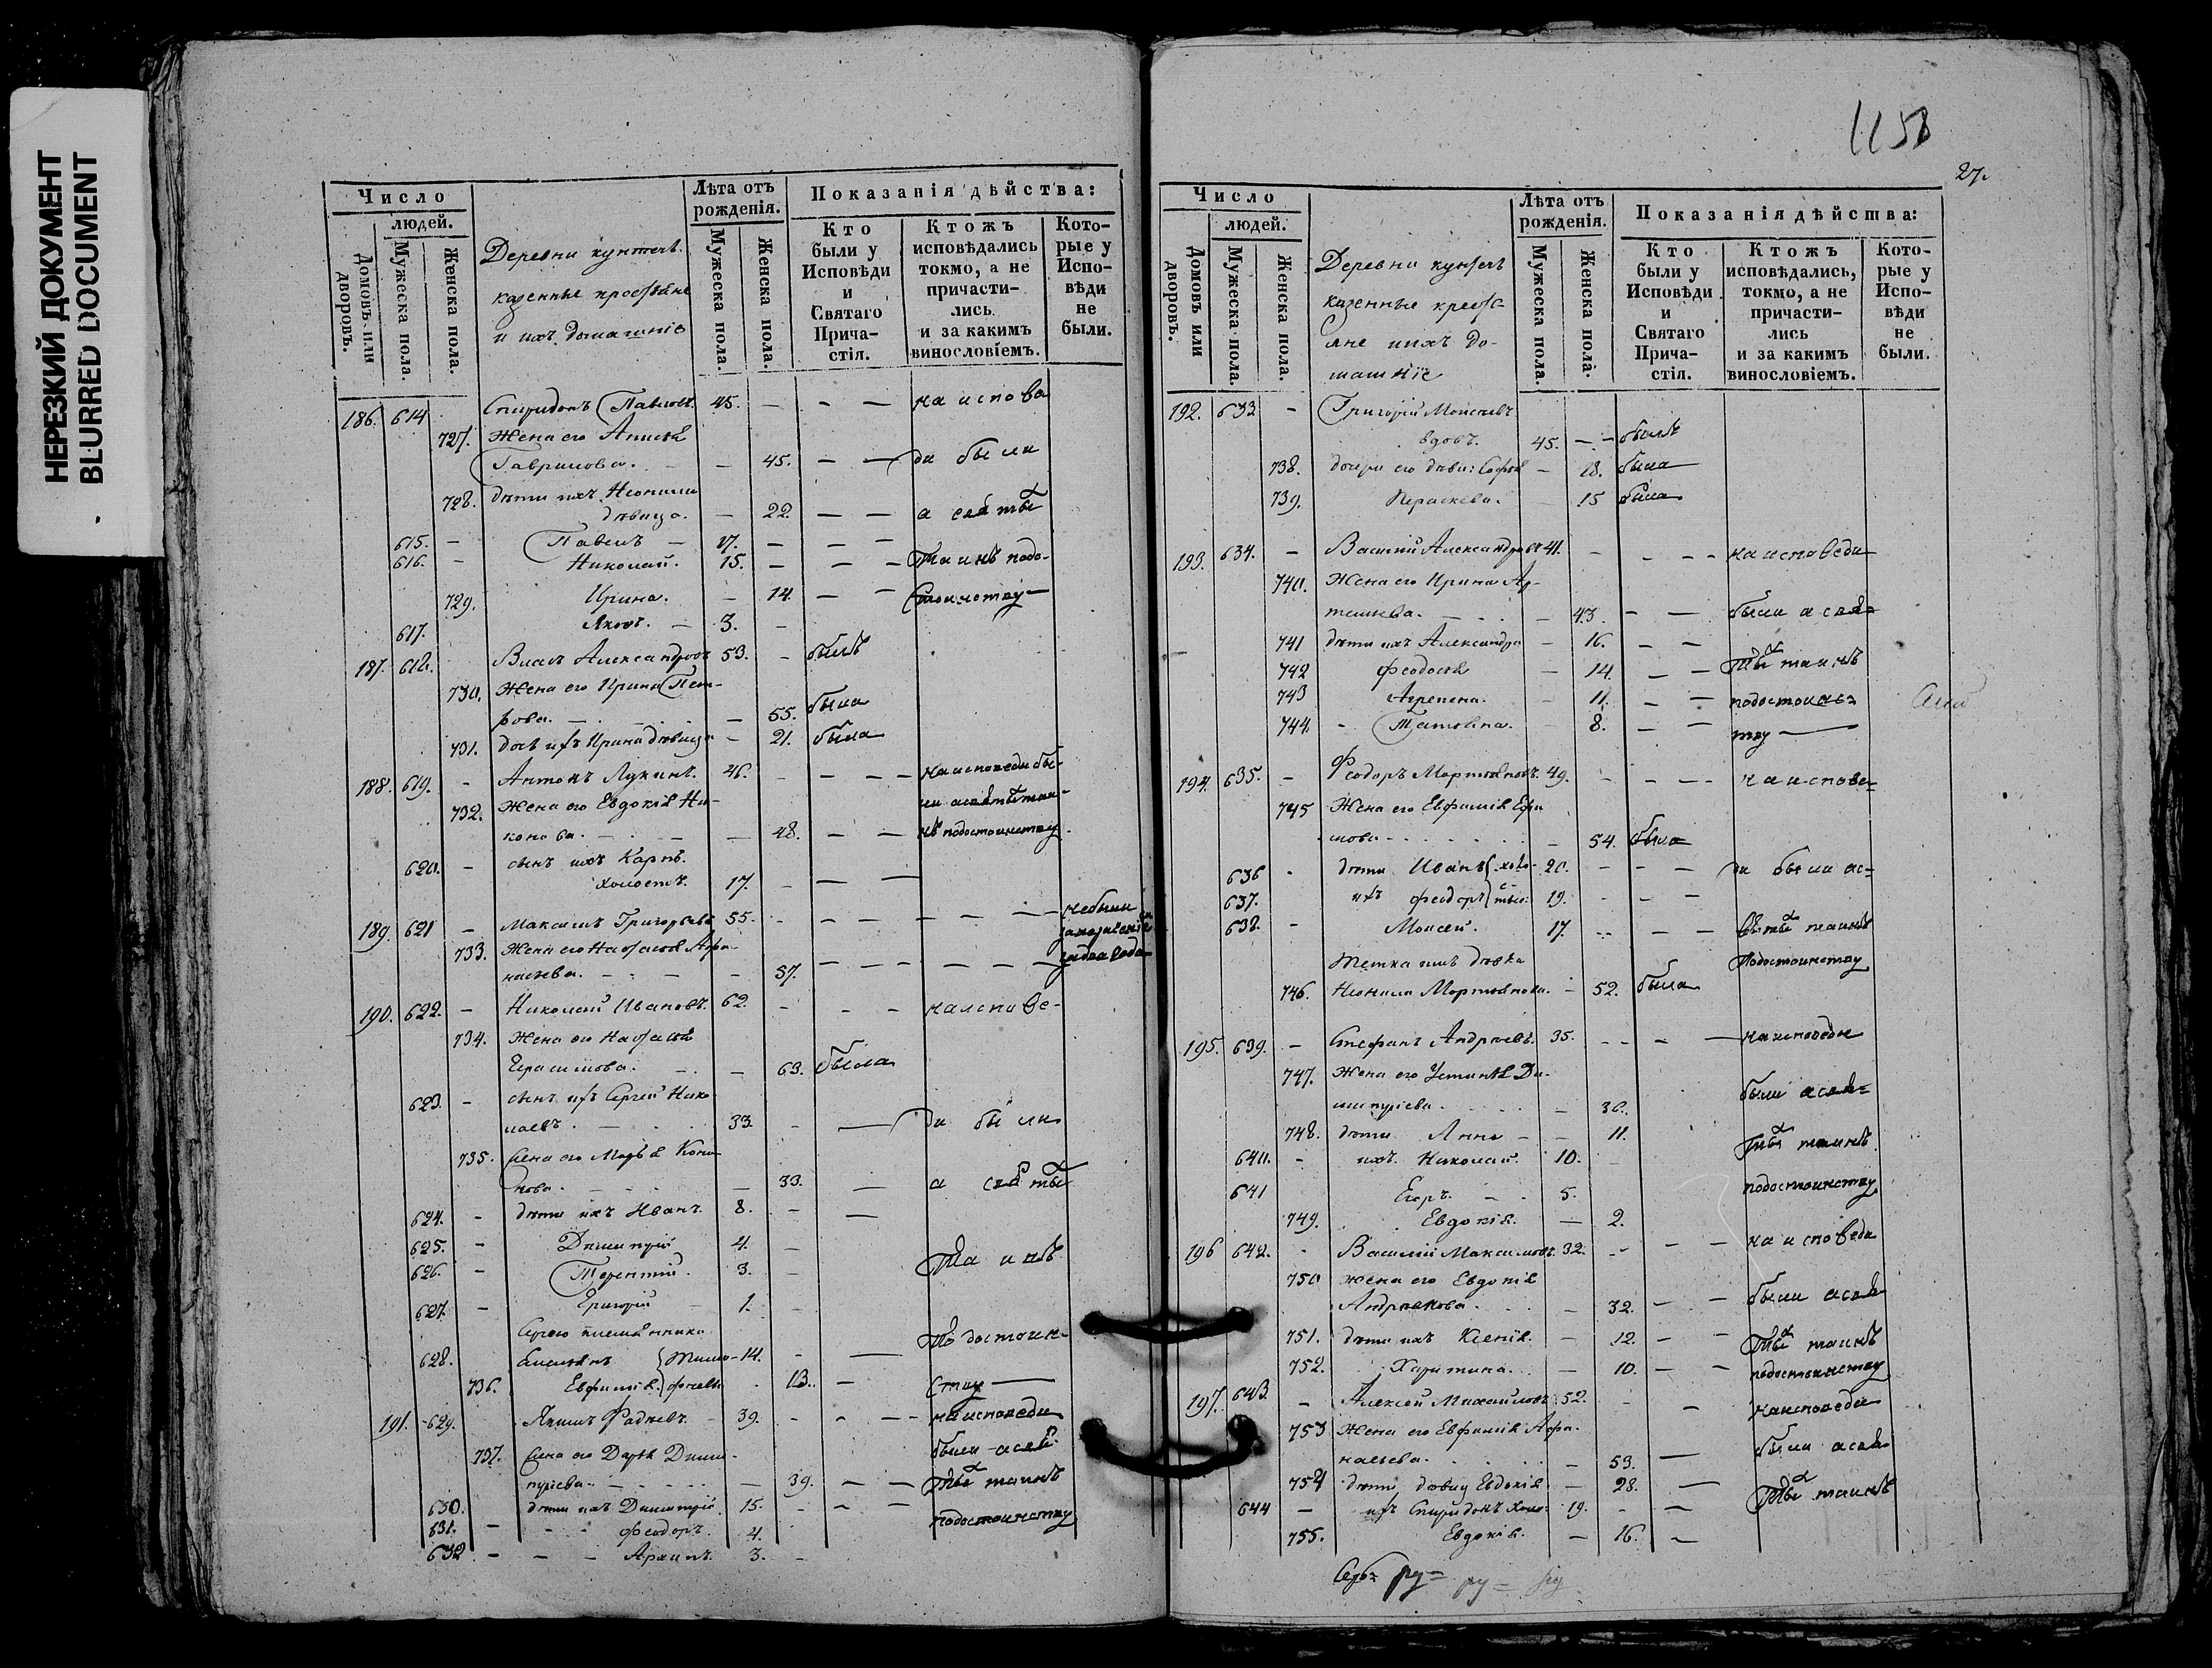 НЕРЕЗКИЙ ДОКУМЕНТ
BLURRED DOCUMENT
Число
людей.
Домовъ или дворовъ.
Мужеска пола.
Женска пола.
Деревни
казенные
и ихъ домашніе
Лѣта отъ рожденія.
Мужеска пола.
Женска пола.
Показанія дѣйства:
Кто были у Исповѣди и Святаго Прича-стія.
Ктожъ исповѣдались токмо, а не причасти-лись и за какимъ винословіемъ.
Кото-рые у Испо-вѣди не были.
186. 614 Спиридонъ Павловъ. 45. — — — на испове
727. Жена его
Гаврилова. — — 45. — — ди были
728. дѣти ихъ Неонила
дѣвица. — 22. — — а свя тыхъ
615. — Павелъ — 17. — — —
616. — Николай. 15. — — — Таинъ недо-
729. Ирина. — 14. — —
617. Яковъ. — 3. —
187. 618. Власъ Александровъ 53. — былъ
730. Жена его Ирина Пет-
рова. — 55. была
731. дочь ихъ Ирина дѣвица — 21. была
188. 619. — Антонъ Лукинъ. 46. — — — — на исповеди бы-
732. Жена его Евдокія Ни-
конова. — — 48. — — нъ недостоинству
620. — сынъ ихъ Карпъ.
холостъ. 17. — — —
189. 621 — Максимъ Григорьевъ 55. — — — — — — небыли
733. Жена его Настасія Афа-
насьева. — — — 57. — — — — — —
190. 622. — Николай Ивановъ. 62. — — — на испове-
734. Жена его Настасія
Герасимова. — — 63. была
623. — сынъ ихъ Сергей Нико
лаевъ. — 33. — — ди были
735. Жена его Марья Коно
нова. — — 33. — а святыхъ
624. — дѣти ихъ Иванъ. 8. — —
625. — Димитрій 4. —
Та инъ
626. — Терентій. 3. —
627. — Григорій — 1. —
Сергею племянника
недостоин-
628. 14. — —
736. Евфимія 13. — ству —
191. 629. Фадѣевъ. — 39. — — — на исповеди
были а свя-
737. Жена его Дарья Дими-
тріева. — — 39. — — тыхъ таинъ
630. дѣти ихъ Димитрій 15. — — —
недостоинству
631. — — Феодоръ. 4.
632 — — — Архипъ. 3. —
1158
27.
Число
людей.
Домовъ или дворовъ.
Мужеска пола.
Женска пола.
Деревни
казенные крестья
не и ихъ до-
машніе
Лѣта отъ рожденія.
Мужеска пола.
Женска пола.
Показанія дѣйства:
Кто были у Исповѣди и Святаго Прича-стія.
Ктожъ исповѣдались, токмо, а не причасти-лись и за какимъ винословіемъ.
Кото-рые у Испо-вѣди не были.
192. 633 — Григорій Моисѣевъ
вдовъ. 45. — — былъ
738. дочери его дѣви: Софья — 18. была
739. Параскева. — 15 была
193. 634. — Василій Александровъ 41. — — — на исповеди
740. Жена его Ирина Ар-
темьева. — — 43. — — были а свя=
741 дѣти ихъ Александра — 16. — —
742 Феодосія — 14. — — тыхъ таинъ
743 Агрепена. — 11. — — недостоинс=
744. — Татьяна. 8. — — тву —
194. 635. — Феодоръ Мартыновъ. 49. — — — на испове=
745 Жена его Евфимія Ефи
мова — — 54. была
636 — дѣти Иванъ холо- 20. — — — ди были ас=
637. ихъ Феодоръ 19. — —
638. — Моисей. 17. — — — вятыхъ таинъ
недостоинству
746. Неонила Мартынова. — 52. была
195. 639. — Стефанъ Андреевъ. 35. — — — на исповеди
747. Жена его Устинья Ди-
митріева. — 36.
были а свя=
748. дѣти Анна — — 11.
тыхъ таинъ
640. — ихъ Николай. 10.
недостоинству
641 Егоръ. — 5.
749. Евдокія. — 2.
196 642. — Василій Максимовъ. 32. — — — на исповеди
750 Жена его Евдокія
Андреянова. — 32. — — были а свя
751. дѣти ихъ Ксенія. — 12. — — тыхъ таинъ
752. Харитина. — 10. — — недостоинству
197. 643. — Алексей Михайловъ 52. — — на исповеди
753 Жена его Евфимія Афа-
насьева. — 53. — были а свя
754 дѣти дѣвица Евдокія. — 28. — тыхъ таинъ
644 — ихъ Спиридонъ Холо: 19. — —
755. Евдокія. — 16. —
ру= ру= ру